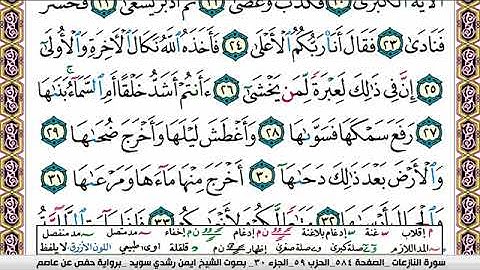 الآية الكبرى ٢٠ فكذب وعصى ٢١ ثم أدبر يسعى ٢٢ فحشر
فَنَادَىٰ ٢٣ فَقَالَ أَنَا۠ رَبُّكُمُ ٱلۡأَعۡلَىٰ ٢٤ فَأَخَذَهُ ٱللَّهُ نَكَالَ ٱلۡأٓخِرَةِ وَٱلۡأُولَىٰٓ
٢٥ إِنَّ فِي ذَٰلِكَ لَعِبۡرَةٗ لِّمَن يَخۡشَىٰٓ ٢٦ ءَأَنتُمۡ أَشَدُّ خَلۡقًا أَمِ ٱلسَّمَآءُۚ بَنَىٰهَا
٢٧ رَفَعَ سَمۡكَهَا فَسَوَّىٰهَا ٢٨ وَأَغۡطَشَ لَيۡلَهَا وَأَخۡرَجَ ضُحَىٰهَا ٢٩
وَٱلۡأَرۡضَ بَعۡدَ ذَٰلِكَ دَحَىٰهَآ ٣٠ أَخۡرَجَ مِنۡهَا مَآءَهَا وَمَرۡعَىٰهَا ٣١
م إقلاب غنة إدغام بلاغنة إدغام إخفاء مد متصل مد منفصل
مد اللازم صلة كبرى صلة صغرى إظهار قلقلة طبيعي اللون الأزرق لا يلفظ
سورة النازعات .الصفحة ٥٨٤ .الحزب ٥٩ .الجزء ٣٠ .بصوت الشيخ ايمن رشدي سويد .برواية حفص عن عاصم